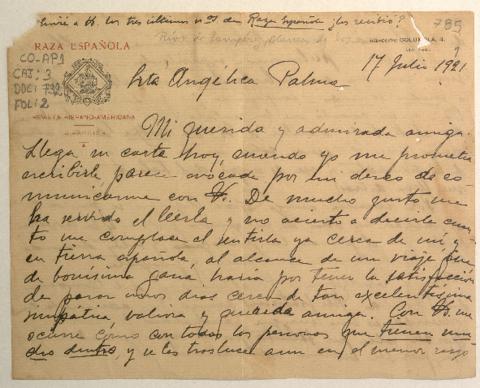 Envié a V. los tres últimos nos de Raza Española ¿los recibió?
785
1
RAZA ESPAÑOLA
CO-AP1
CAJ: 3
DOC: 792
FOL: 2
REVISTA HISPANOAMERICANA
COLUMELA, 4.
17 Julio 1921
Srta Angélica Palma
Mi querida y admirada amiga.
Llega su carta hoy, cuando yo me prometía
escribirle parece evocada por mi deseo de co-
municarme con V. De mucho gusto me
ha servido el leerla y no acierto a decirle cuan-
to me complace el sentirla ya cerca de mí, y
en tierra española, al alcance de un viaje que
de bonísima gana haría por tener la satisfacción
de pasar unos días cerca de tan excelentísima
simpatica valiosa y querida amiga. Con V. me
ocurre cómo con todas las personas que tienen mu-
cho dentro, y se les trasluce aun en el menor rasgo